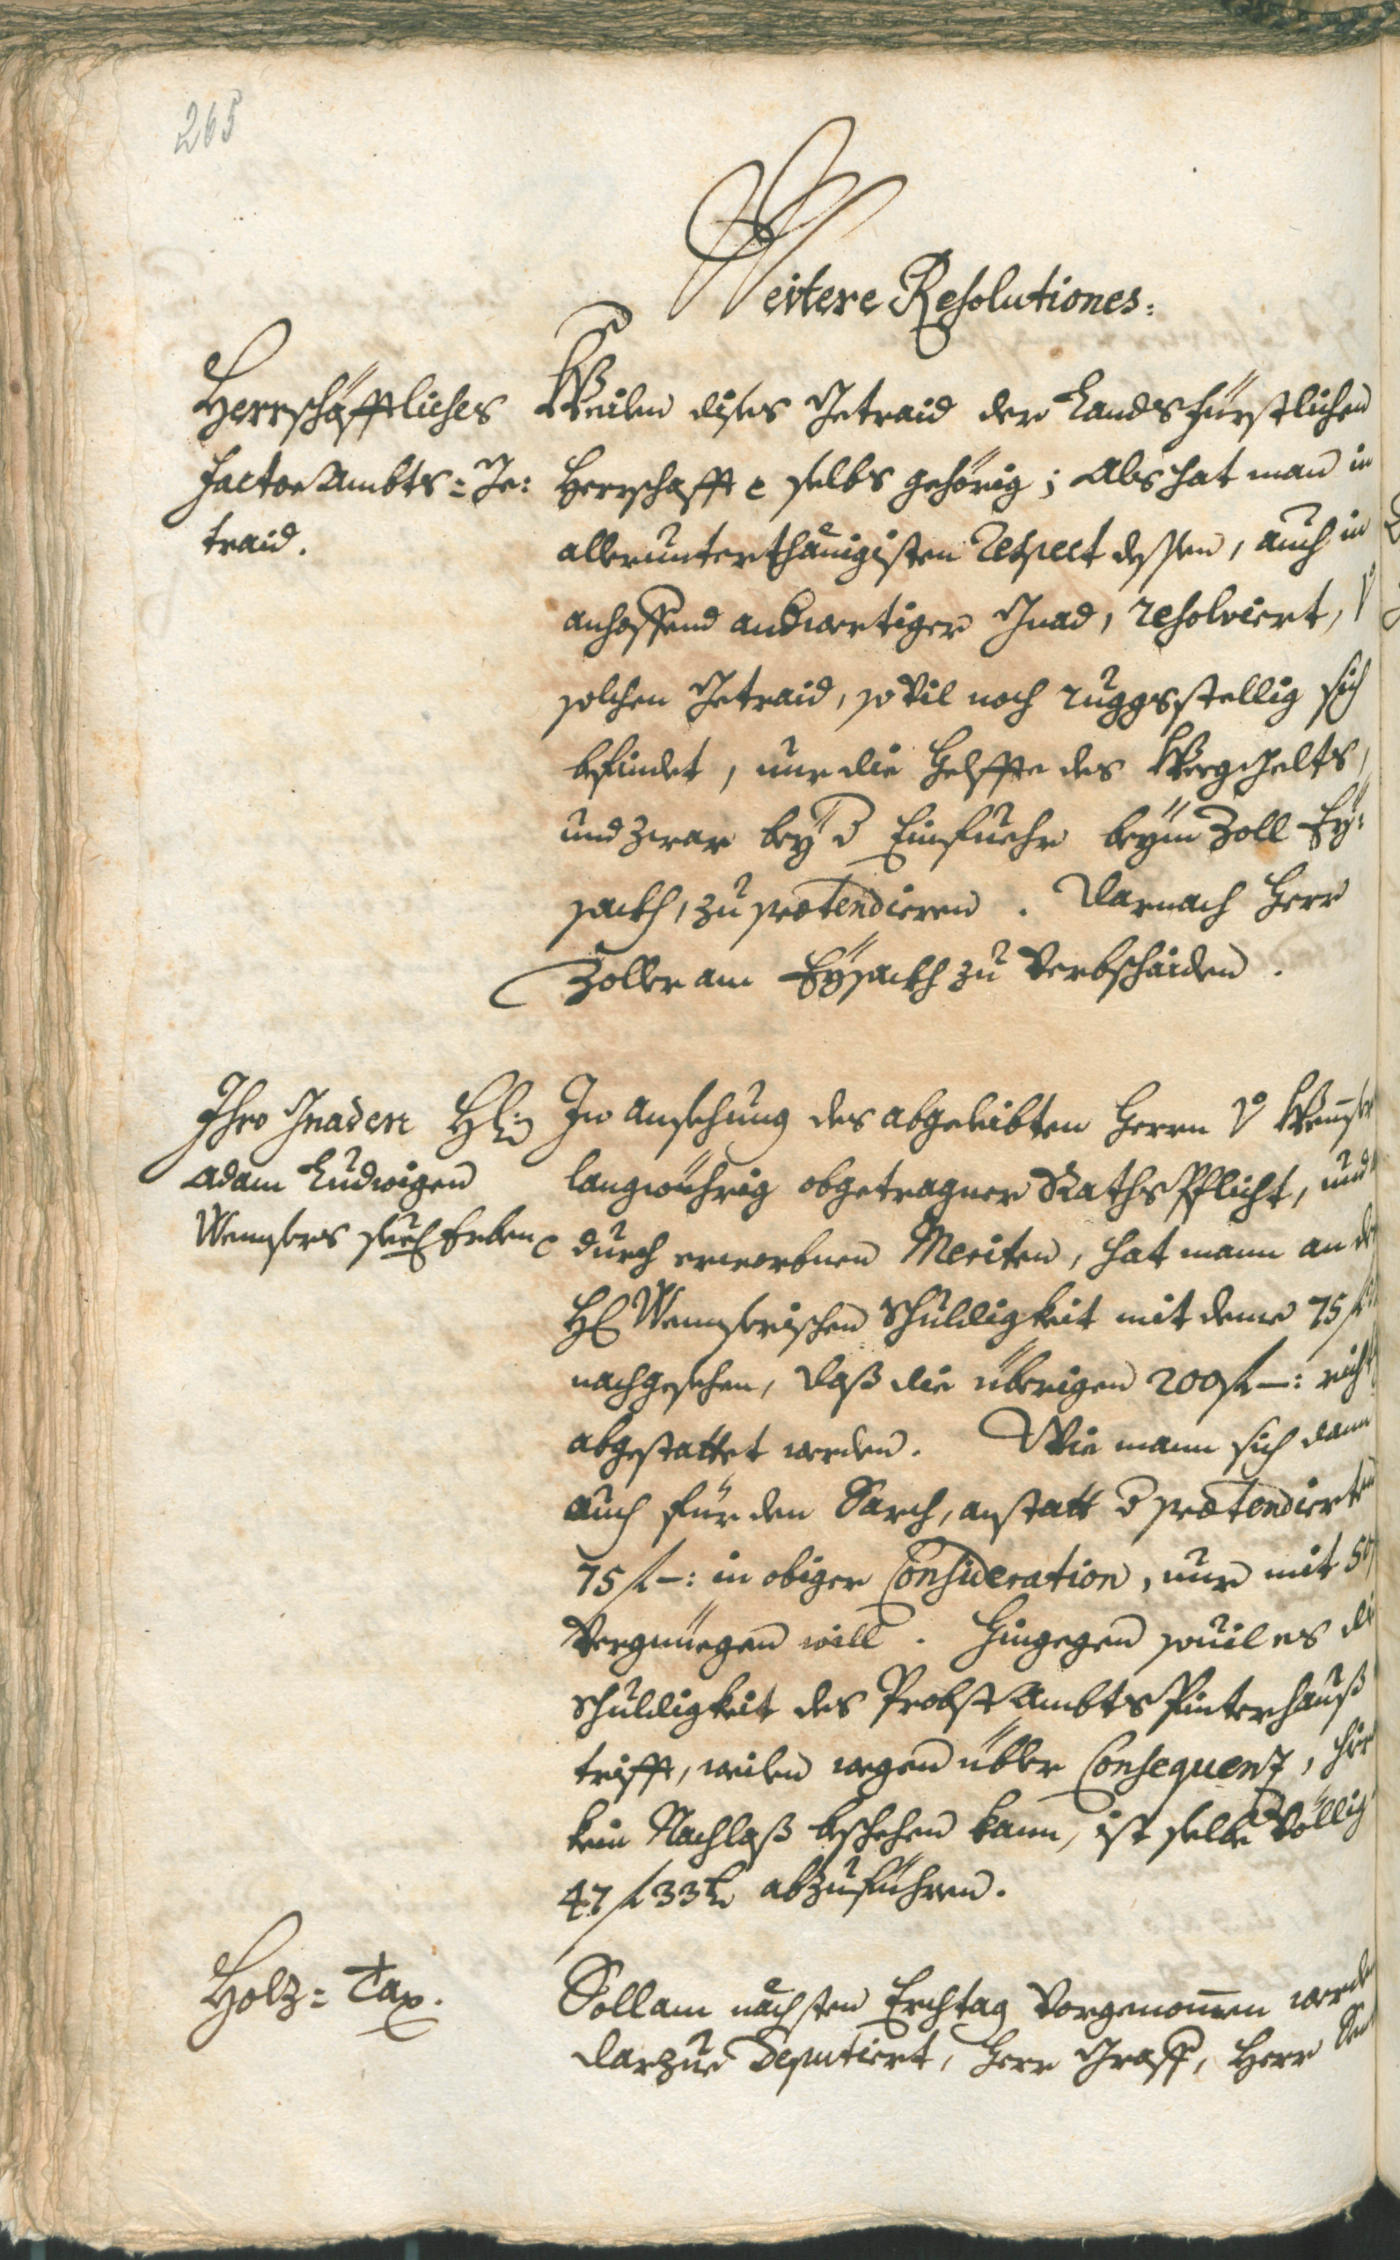 265
Weitere Resolutiones:
Herrschäfftliches
Factor Ambts=Ge:
traid.
Weilen dises Getraid der Landsfürstlichen
Herrschafft selbs gehörig; Als hat man in
allerunterthänigisten Respect dessen, auch in
anhoffend andwertiger Gnad, resolviert, v̊
solchen Getraid, so vil noch ruggstellig sich
befindet, nur die Helffte des Weggelts,
und zwar bey d Einfuehr beym Zoll Ey:
sackh, zu prætendieren. Darnach Herr
Zoller am Eysackh zu verbschaiden.
Ihro Gnaden H:
Adam Ludwigen
Wenzers seel Erben
In ansehung des abgeleibten Herrn v̊
langwührig obgetragner Raths Pflicht, und
durch erworbnen Meriten, hat mann an der
H Wenzerischen Schuldigkeit mit deme 75 f
nachgesehen, daß die überigen 200 f —:
abgestattet werden. Wie mann sich dann
auch für den Sarch, anstatt d prætendierten
75 f —: in obiger Consideration, nur mit 50
vergnüegen will. Hingegen souil es die
Schuldigkeit des Probst Ambts Pinterhauß
trifft, weilen wegen übler Consequenz, hier
kein Nachlaß beschehen kann, ist selbe völlig
47 f 33 k abzuführen.
Holz=Tax.
Soll am nächsten Erchtag vorgenommen werden
darzue deputiert, Herr Graff, Herr